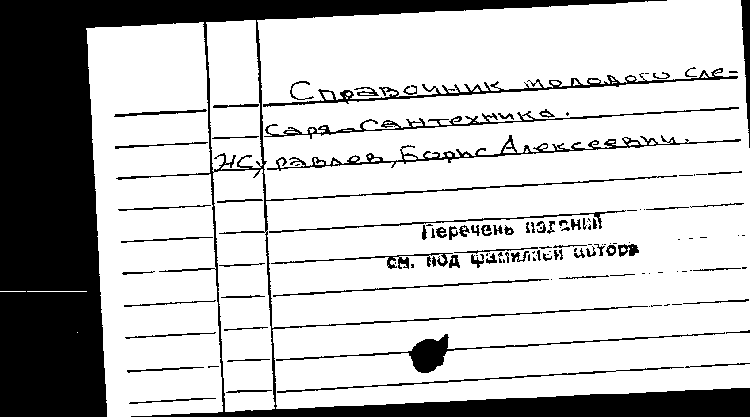 Справочник молодого сле=
саря-сантехника.
Журавлев, Борис Алексеевич.
Перечень изданий
см. под фамилией автора